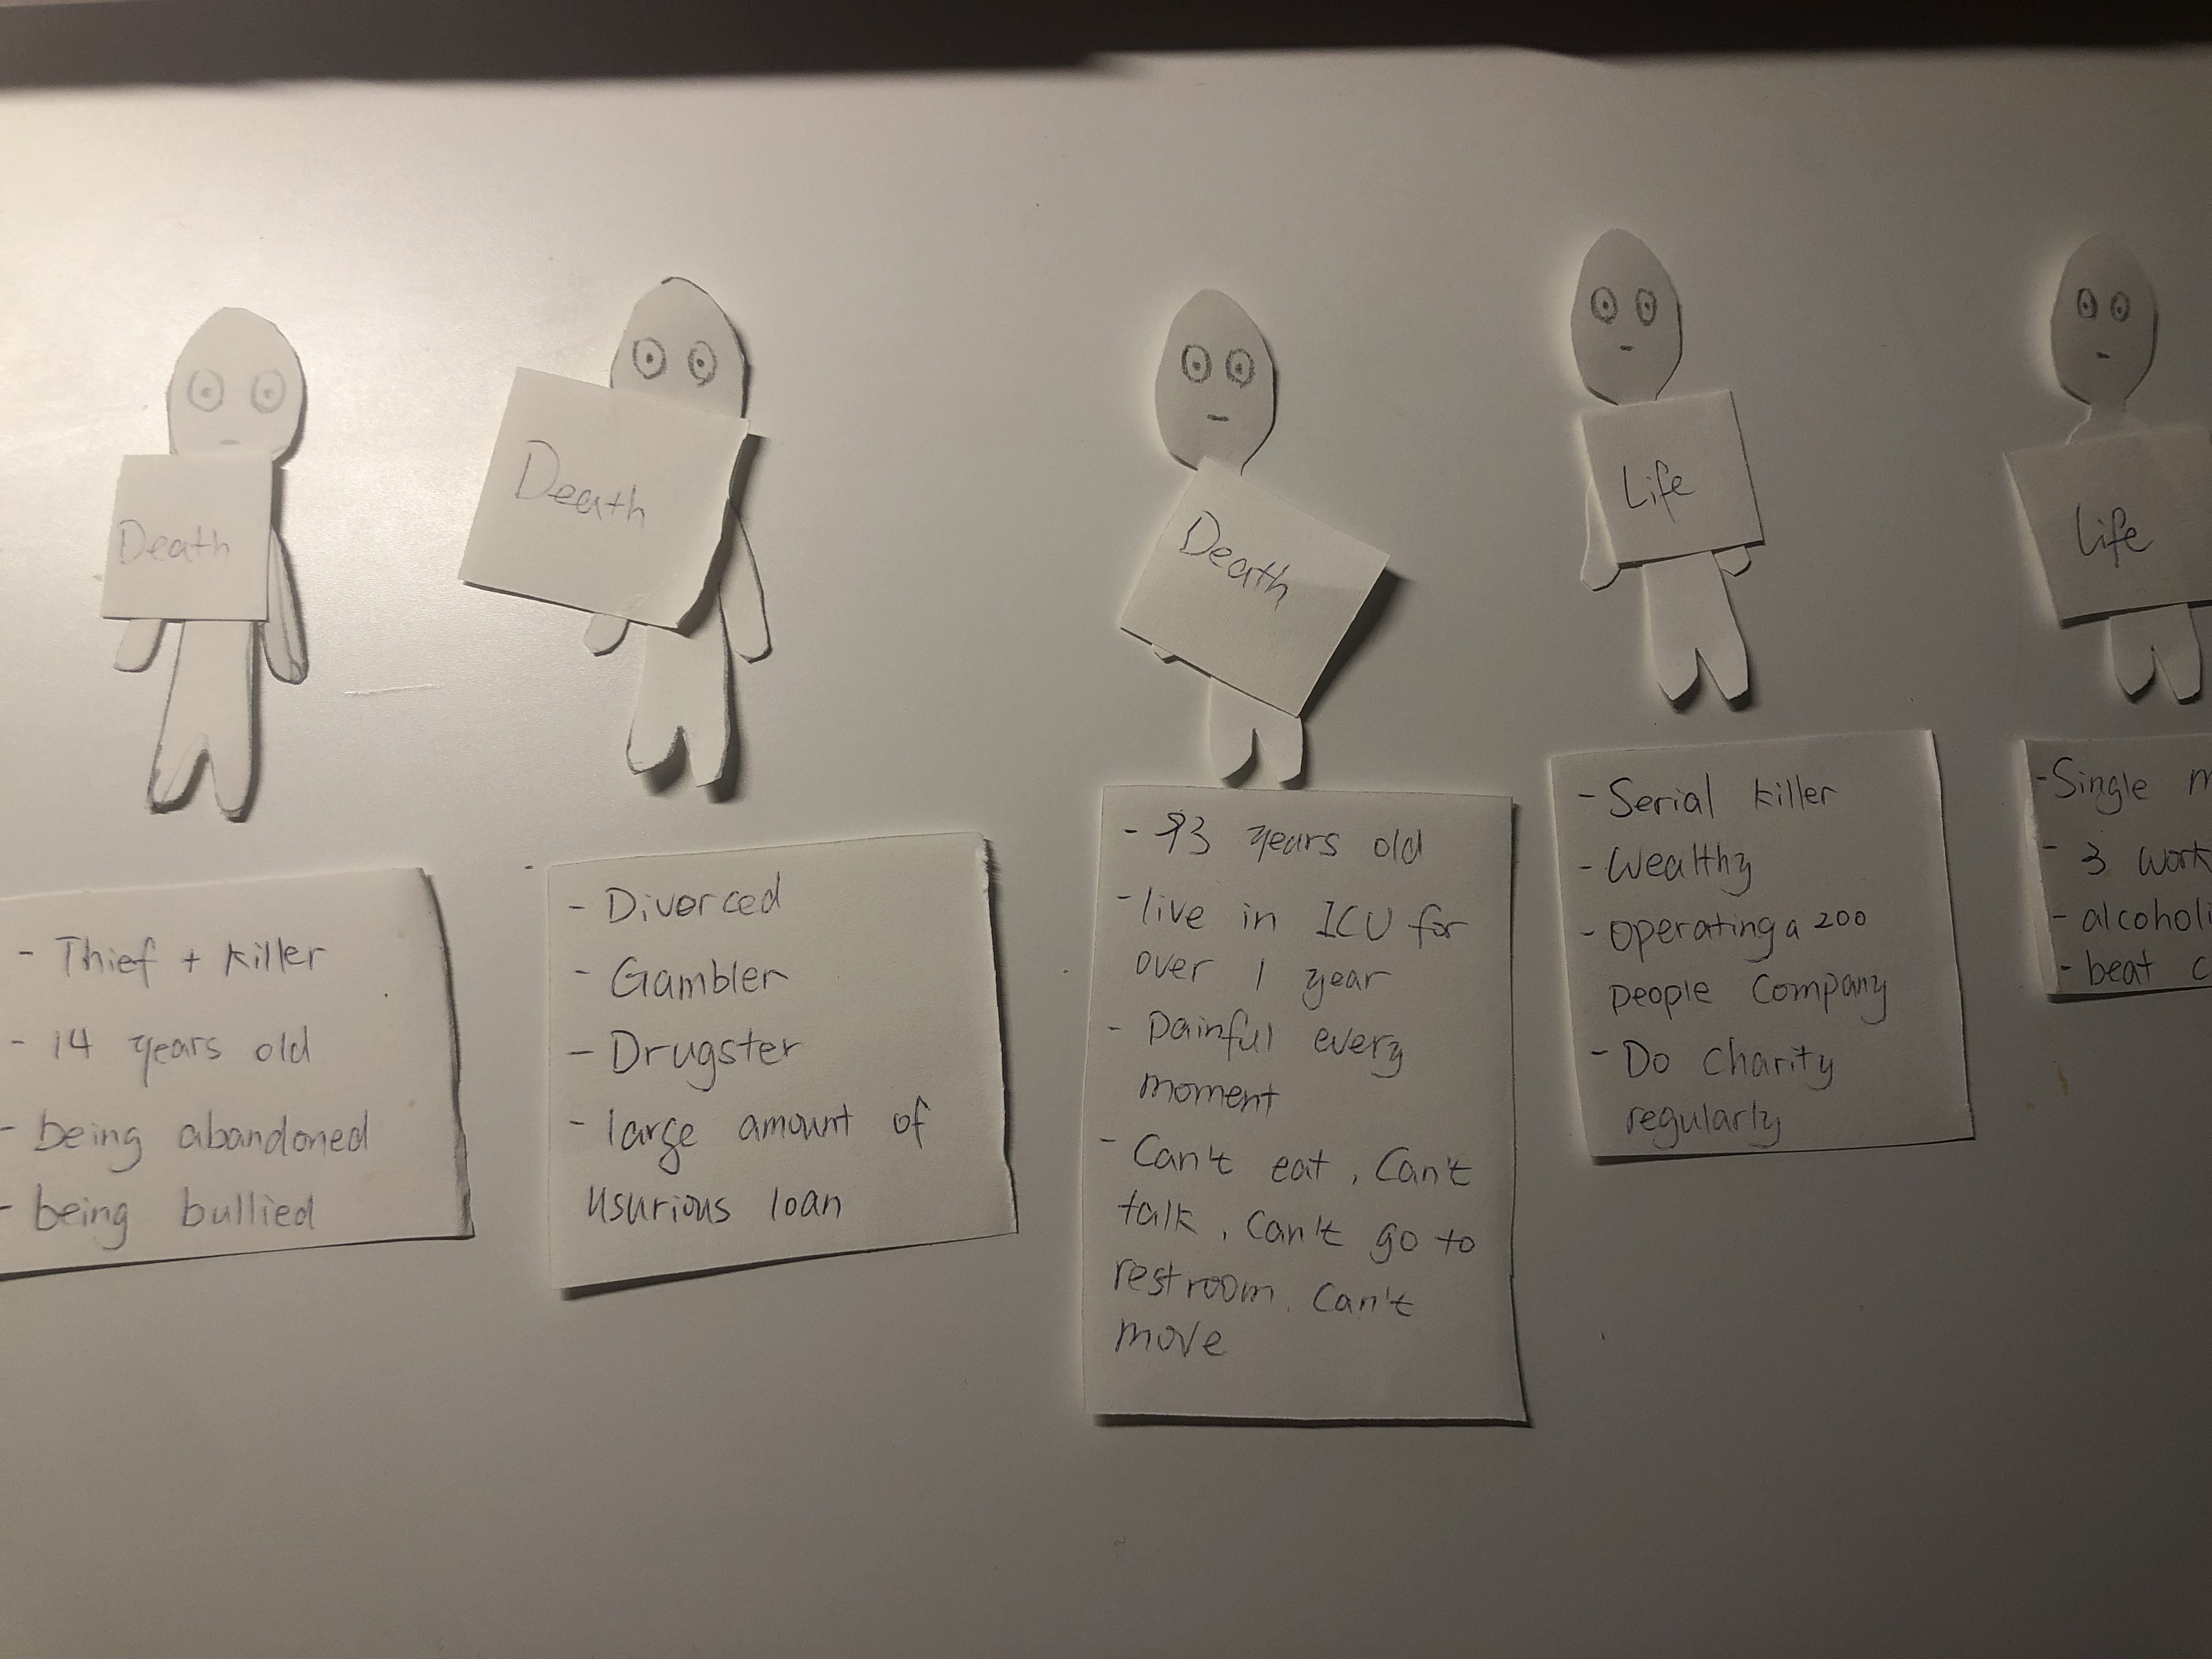 Death
- Thief + killer
- 14 years old
- being abandoned
- being bullied
Death
- Divorced
- Gambler
- Drugster
- large amount of
usurious loan
Death
- 93 years old
- live in ICU for
over 1 year
- painful every
moment
- Can't eat, Can't
talk, Can't go to
restroom, Can't
move
Life
- Serial killer
- Wealthy
- operating a 200
people company
- Do charity
regularly
Life
- Single
- 3 work
-
- beat